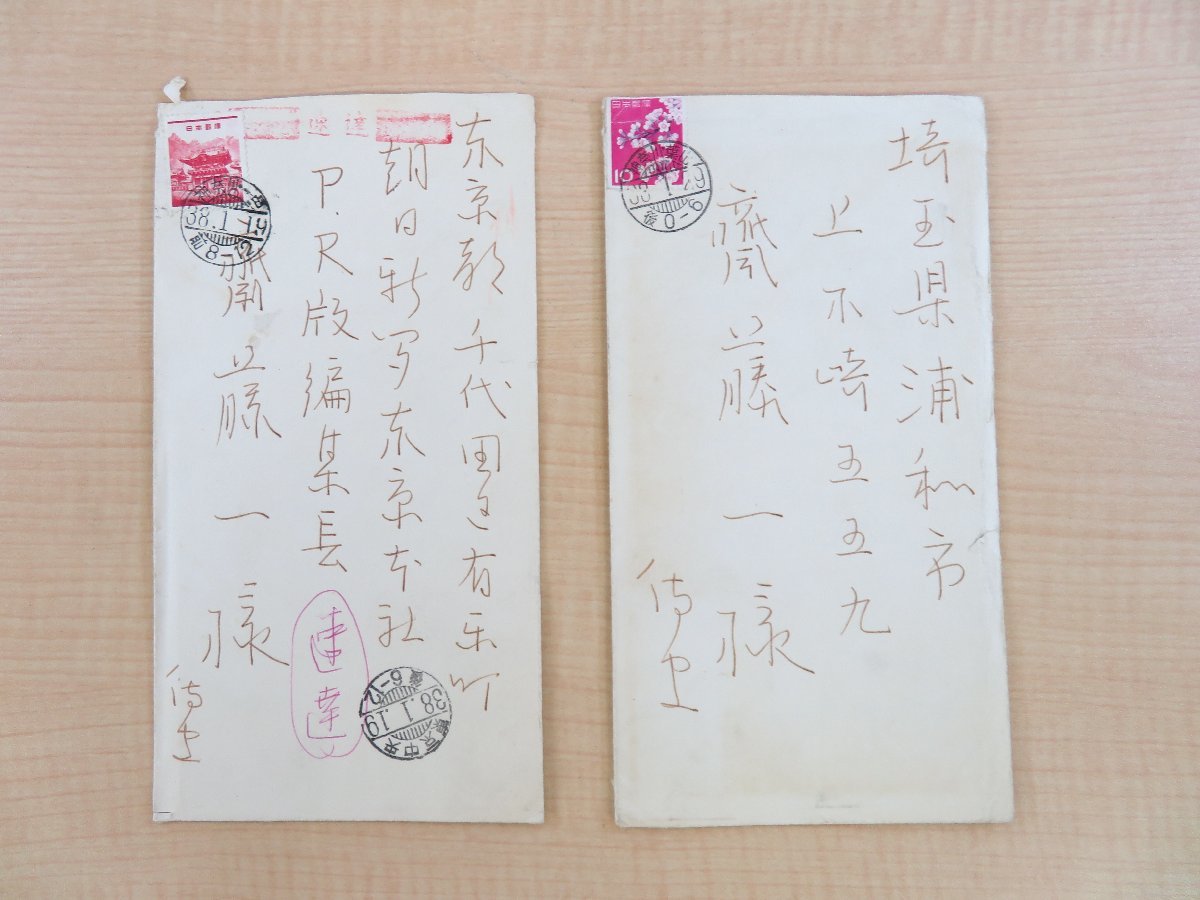 日本郵便
速達
38.1.19
后8-12
東京都千代田区有楽町
朝日新聞東京本社
P.R版編集長
齋藤一様
侍史
速達
東京中央
38.1.19
后6-12
日本郵便
10
后0-6
埼玉県浦和市
上木崎五五九
齋藤一様
侍史